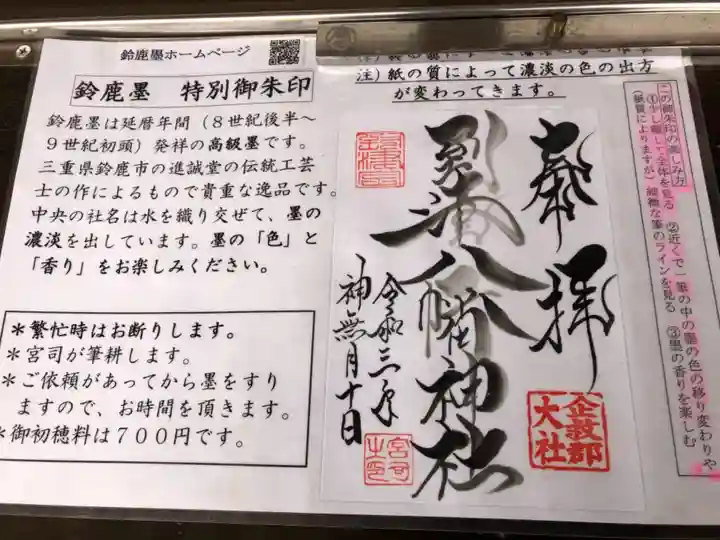 鈴鹿墨ホームページ
鈴鹿墨　特別御朱印
鈴鹿墨は延暦年間（８世紀後半～
９世紀初頭）発祥の高級墨です。
三重県鈴鹿市の進誠堂の伝統工芸
士の作によるもので貴重な逸品です。
中央の社名は水を織り交ぜて、墨の
濃淡を出しています。墨の「色」と
「香り」をお楽しみください。
＊繁忙時はお断りします。
＊宮司が筆耕します。
＊ご依頼があってから墨をすり
ますので、お時間を頂きます。
＊御初穂料は７００円です。
注）紙の質によって濃淡の色の出方
が変わってきます。
奉拝
企救郡
大社
八幡神社
令和三年
神無月十日
宮司
之印
この御朱印の楽しみ方
①少し離して全体を見る　②近くで一筆の中の墨の色の移り変わりや
（紙質によりますが）繊細な筆のラインを見る　③墨の香りを楽しむ